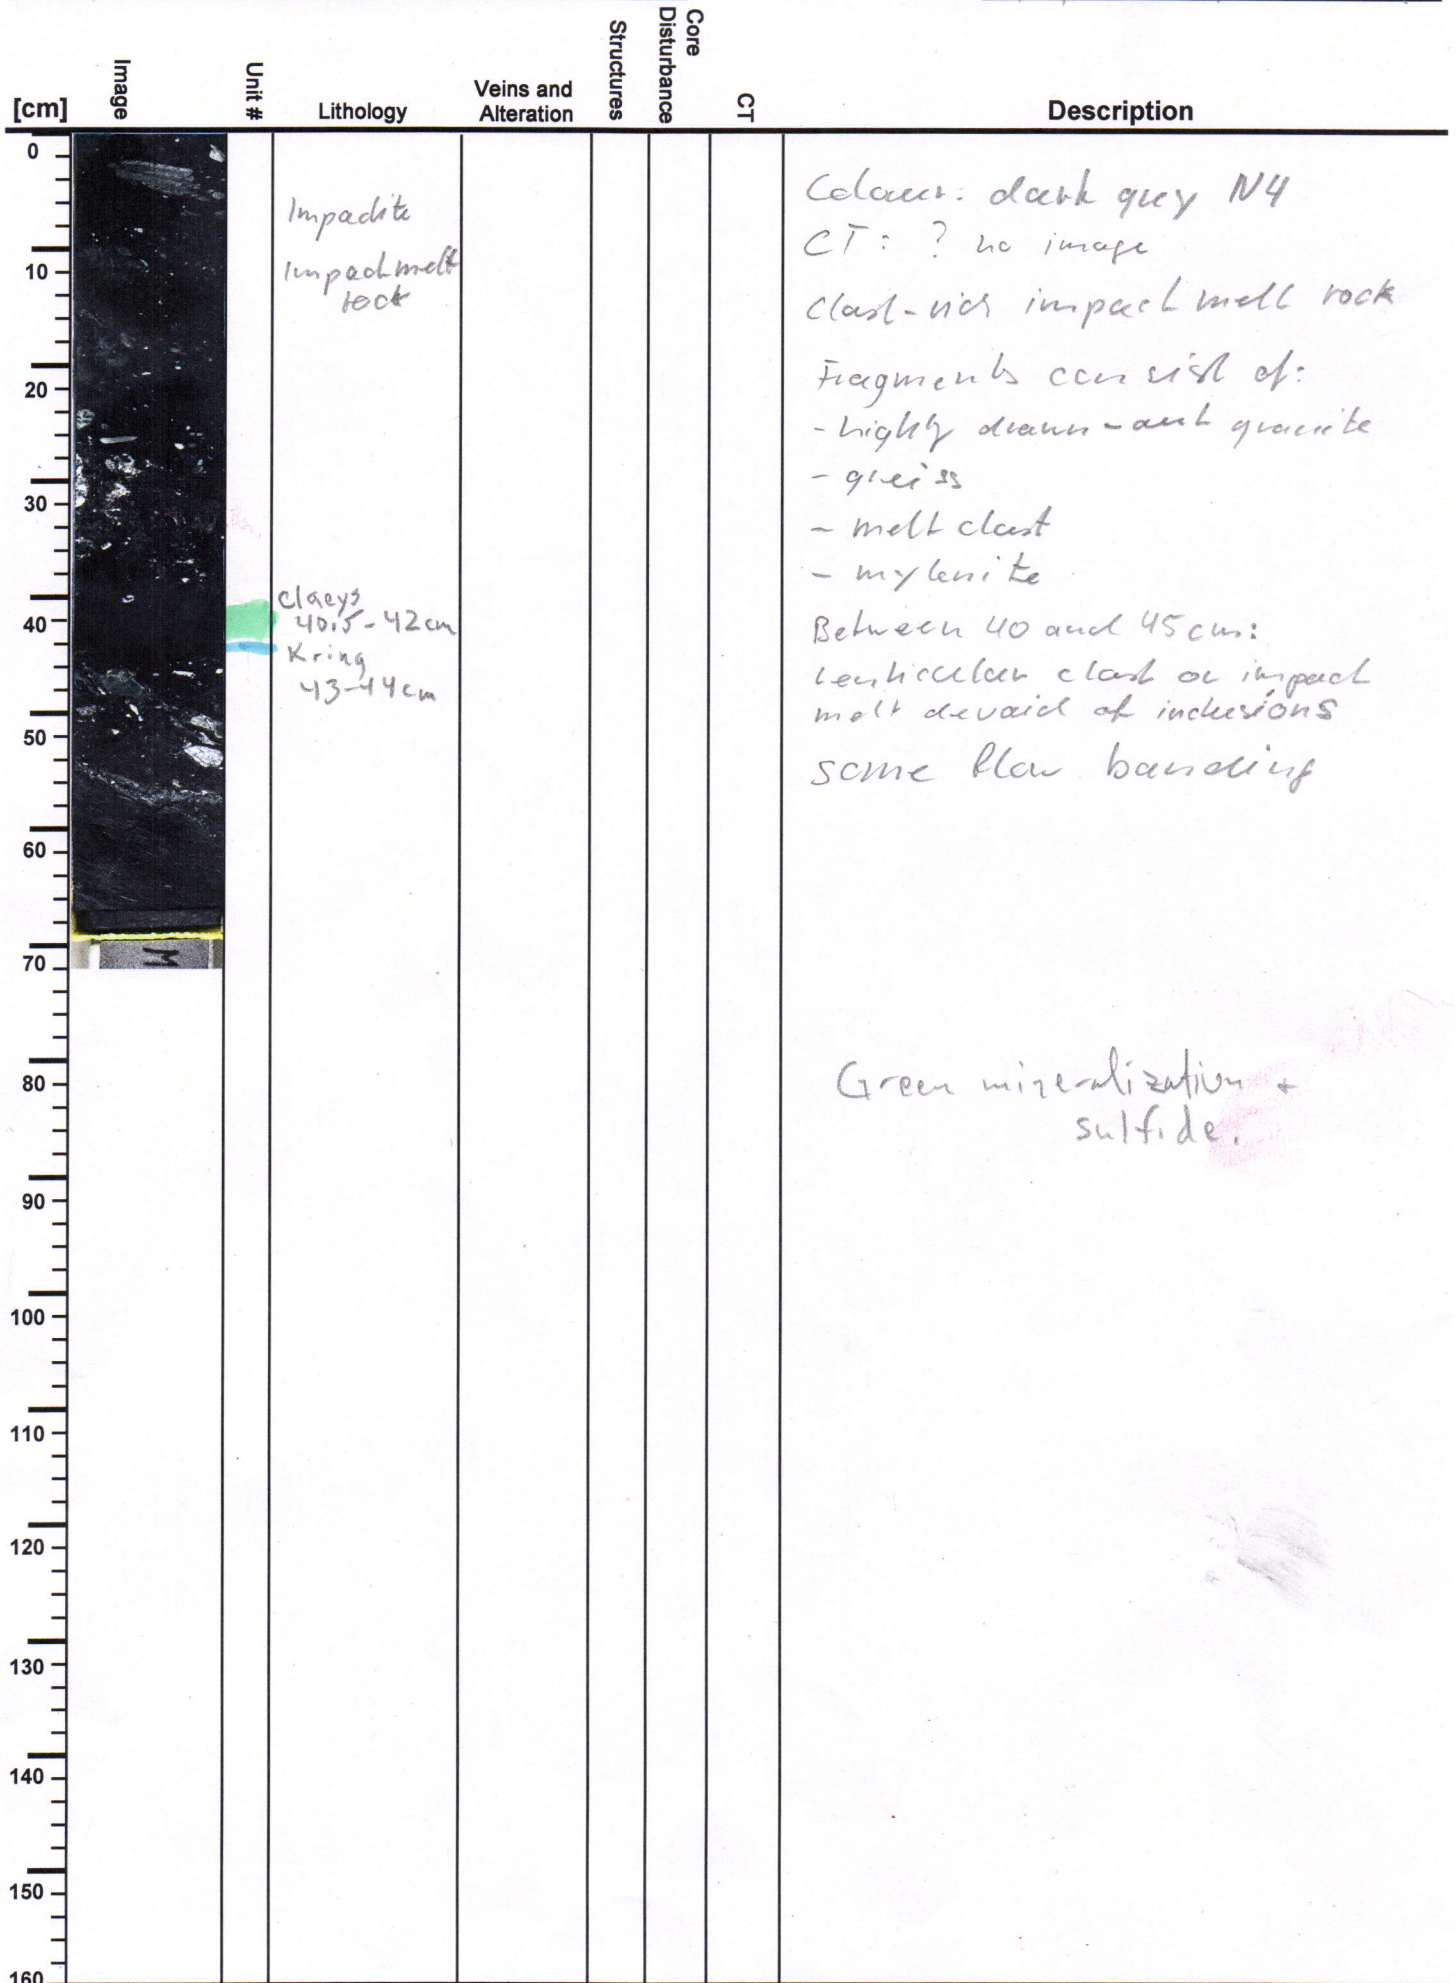 [cm]
Image
Unit #
Lithology
Veins and
Alteration
Structures
Core
Disturbance
CT
Description
0
10
20
30
40
50
60
70
80
90
100
110
120
130
140
150
160
M
Impactite
Impact melt
rock
Claeys
40.5-42cm
Kring
43-44cm
Colour: dark grey N4
CT: ? no image
Clast-rich impact melt rock
Fragments consist of:
- highly drawn-out granite
- gneiss
- melt clast
- mylonite
Between 40 and 45 cm:
lenticular clast or impact
melt devoid of inclusions
some flow banding
Green mineralization +
sulfide.